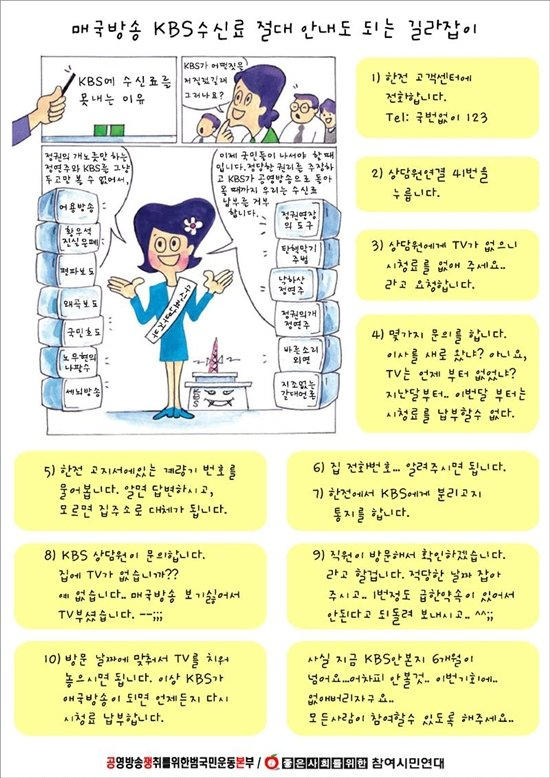 매국방송 KBS수신료 절대 안내도 되는 길라잡이
KBS에 수신료를
못내는 이유
KBS가 어떤짓을
저질렀길래
그러나요?
정권의 개노릇만 하는
정연주와 KBS를 그냥
두고만 볼 수 없어서,
이제 국민들이 나서야 할 때
입니다. 정당한 권리는 주장하
고 KBS가 공영방송으로 돌아
올 때까지 우리는 수신료
납부를 거부
합니다.
어용방송
황우석
진실은폐
편파보도
왜곡보도
국민호도
노무현의
나팔수
세뇌방송
정권연장
의 도구
탄핵막기
주범
낙하산
정연주
정권의개
정연주
바른소리
외면
지조없는
갈대언론
수신료납부거부
KBS
1) 한전 고객센터에
전화합니다.
Tel: 국번없이 123
2) 상담원연결 41번을
누릅니다.
3) 상담원에게 TV가 없으니
시청료를 없애 주세요..
라고 요청합니다.
4) 몇가지 문의를 합니다.
이사를 새로 왔냐? 아니요,
TV는 언제 부터 없었냐?
지난달부터.. 이번달 부터는
시청료를 납부할수 없다.
5) 한전 고지서에있는 계량기 번호를
물어봅니다. 알면 답변하시고,
모르면 집주소로 대체가 됩니다.
6) 집 전화번호... 알려주시면 됩니다.
7) 한전에서 KBS에게 분리고지
통지를 합니다.
8) KBS 상담원이 문의합니다.
집에 TV가 없습니까??
예 없습니다.. 매국방송 보기싫어서
TV부셨습니다. --;;;
9) 직원이 방문해서 확인하겠습니다.
라고 할겁니다. 적당한 날짜 잡아
주시고.. 1번정도 급한약속이 있어서
안된다고 되돌려 보내시고.. ^^;;
10) 방문 날짜에 맞춰서 TV를 치워
놓으시면 됩니다. 이상 KBS가
애국방송이 되면 언제든지 다시
시청료 납부합니다.
사실 지금 KBS안본지 6개월이
넘어요...어차피 안볼것.. 이번기회에..
없애버리자구요..
모든사람이 참여할수 있도록 해주세요..
공영방송쟁취를위한범국민운동본부 / 좋은사회를위한 참여시민연대